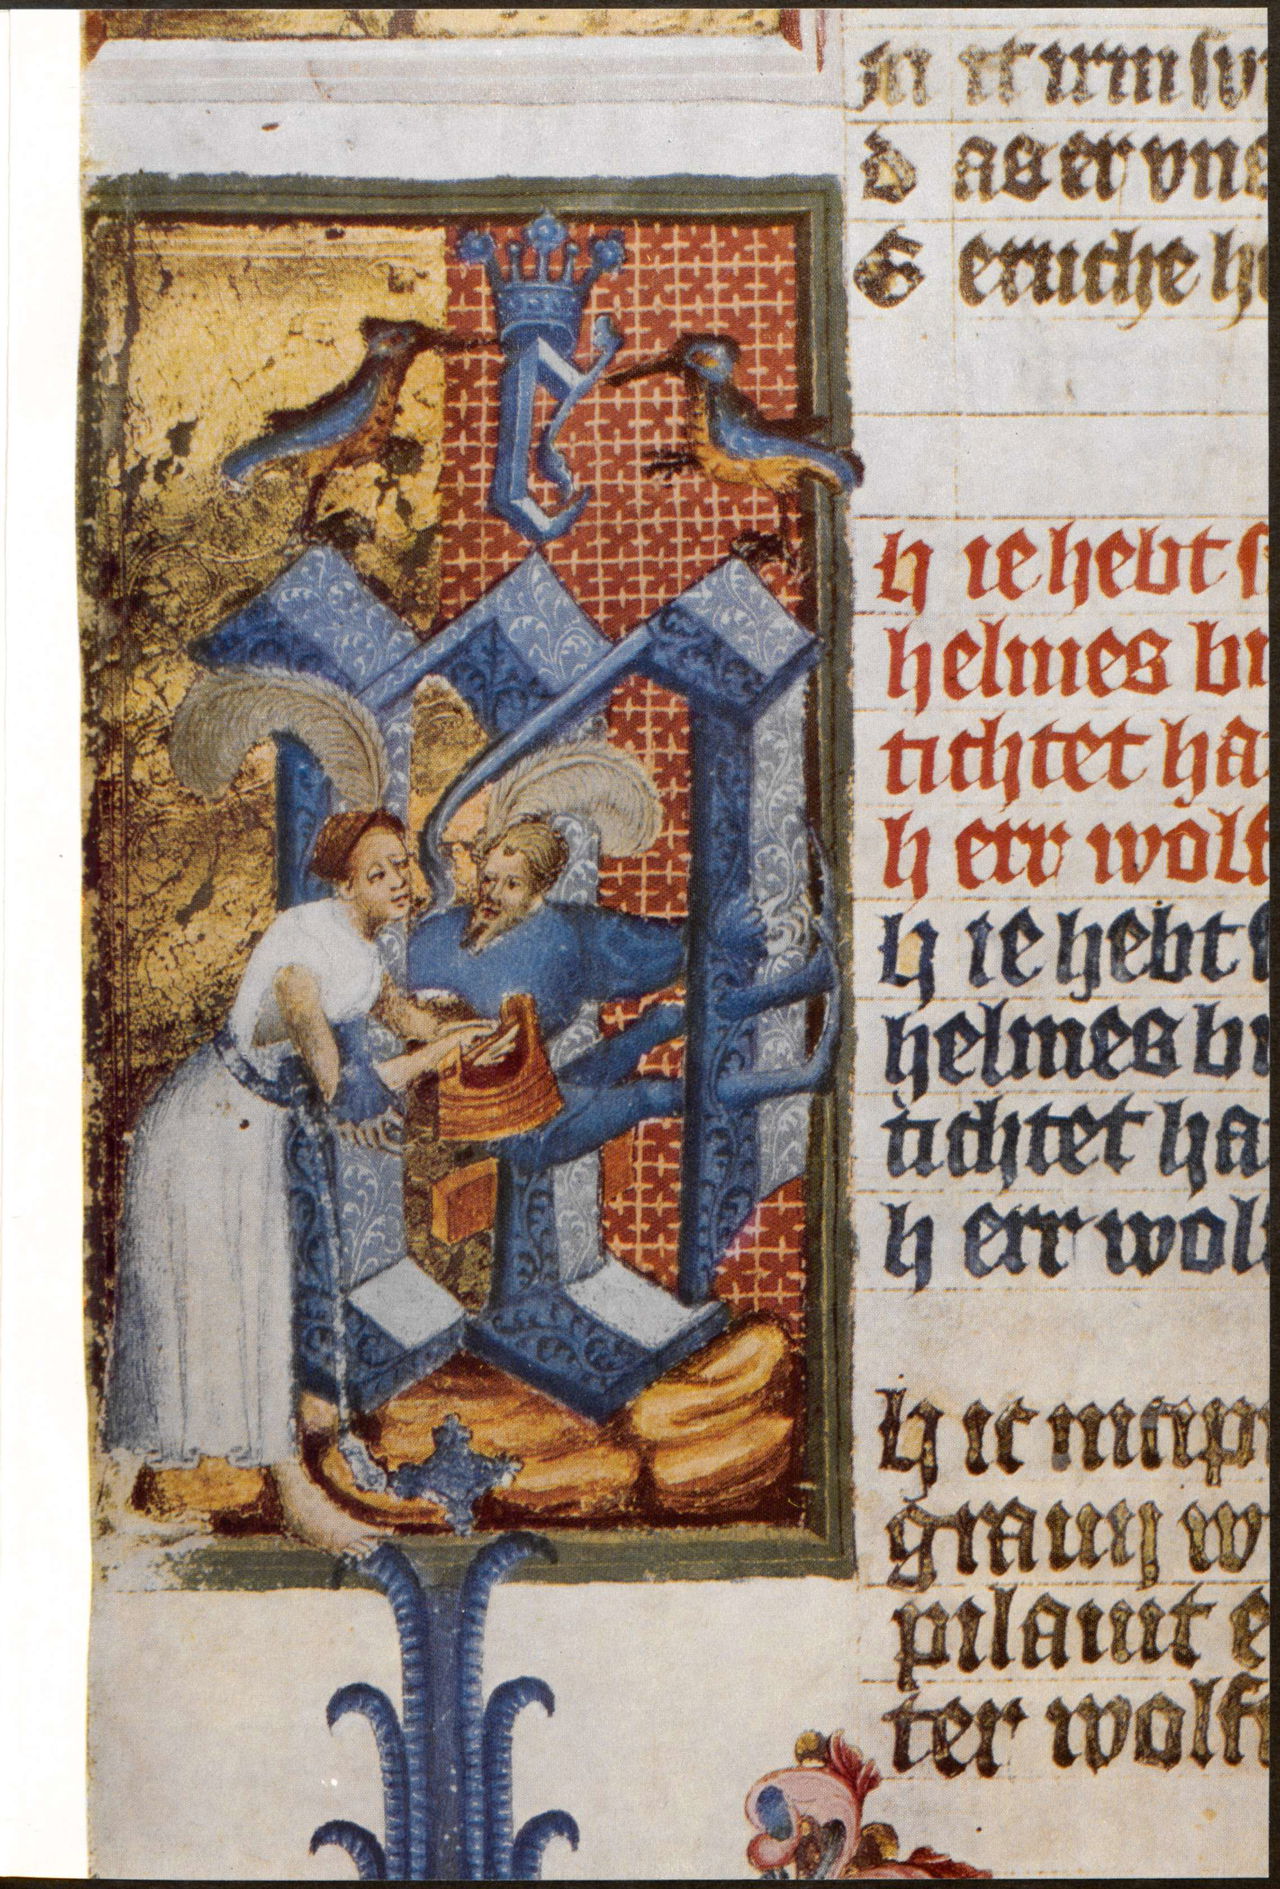 d as er vns
G eruche he
h ie hebt s
helmes bu
tichtet ha
h err wolf
h ie hebt s
helmes bu
tichtet ha
h err wolf
h ic incip
grauij w
pilauit e
ter wolf